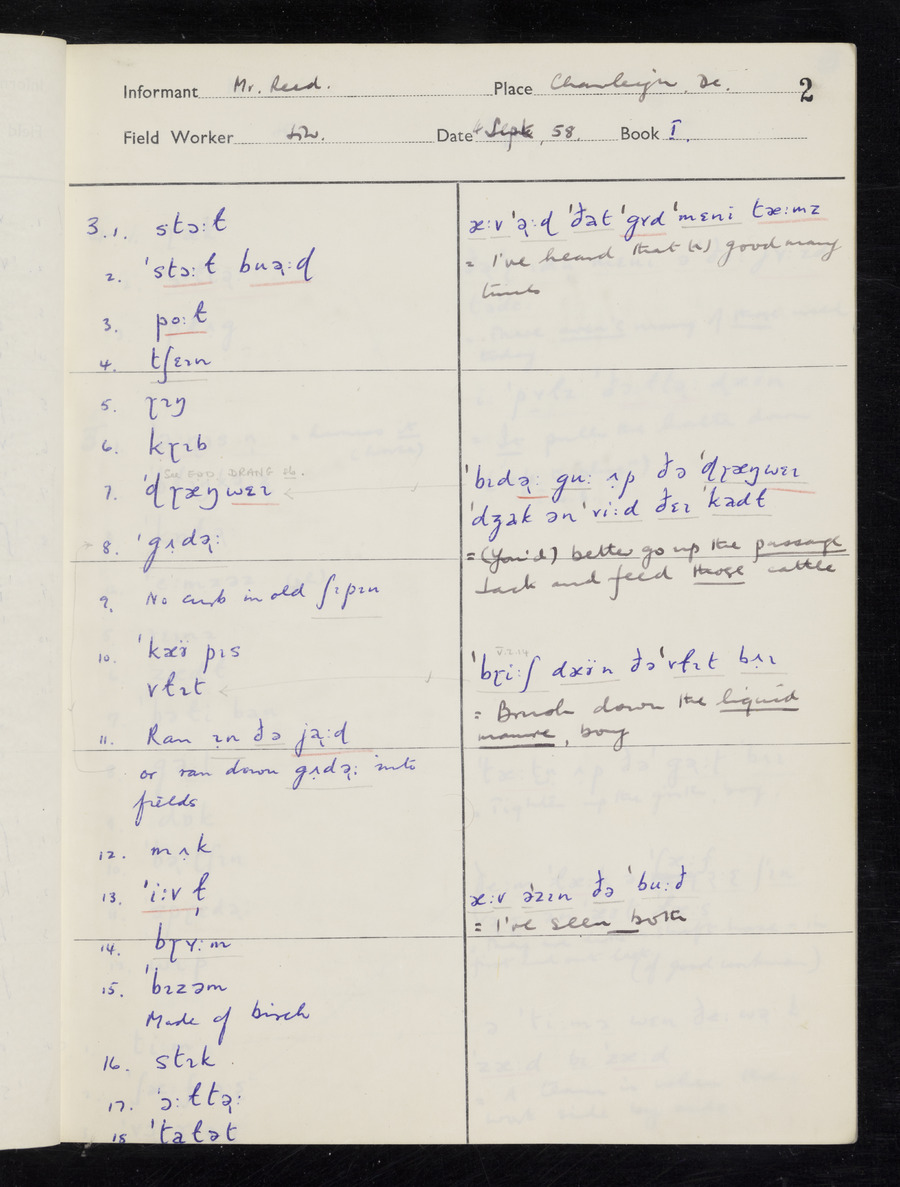 Informant Mr. Reed. Place Chawleigh, De. 2
Field Worker Date Sept, 58. Book I.
3.1. stɔːɫ
2. ˈstɔːɫ buə̣ːd
3. poːɫ
4. tʃɛɪn
5. ɽɪŋ
6. kɽɪb
7. ˈdɽæŋwɛɪ
8. ˈgʌ̣də̣ː
9. No curb in old ʃɪpɪn
10. ˈkæÿ pɪs
vɫɪt
11. Ran ɪn ðə jạːd
or ran down gʌ̣də̣ː into
fields
12. mʌ̣k
13. ˈiːv ɫ
14. bɽʏːm
15. ˈbɪzəm
Made of birch
16. stɪk
17. ˈɔːɫtə̣ː
18 ˈtaɫət
æːv ˈə̣ːd ˈðat ˈgʏd ˈmɛni tæːmz
= I've heard that good many
times
ˈbɪdə̣ː guː ʌ̣p ðə ˈdɽæŋwɛɪ
ˈdʒak ən ˈviːd ðɛɪ ˈkadɫ
= (You'd) better go up the passage
Jack and feed those cattle
V.2.14
ˈbɽiːʃ dæÿn ðə ˈvɫɪt bʌɪ
= Brush down the liquid
manure, boy
æːv əˈzɪn ðə ˈbuːð
= I've seen both